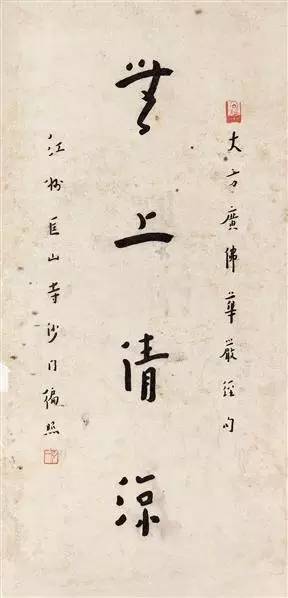 大方廣佛華嚴經句
無上清涼
江州匡山寺沙門徧照